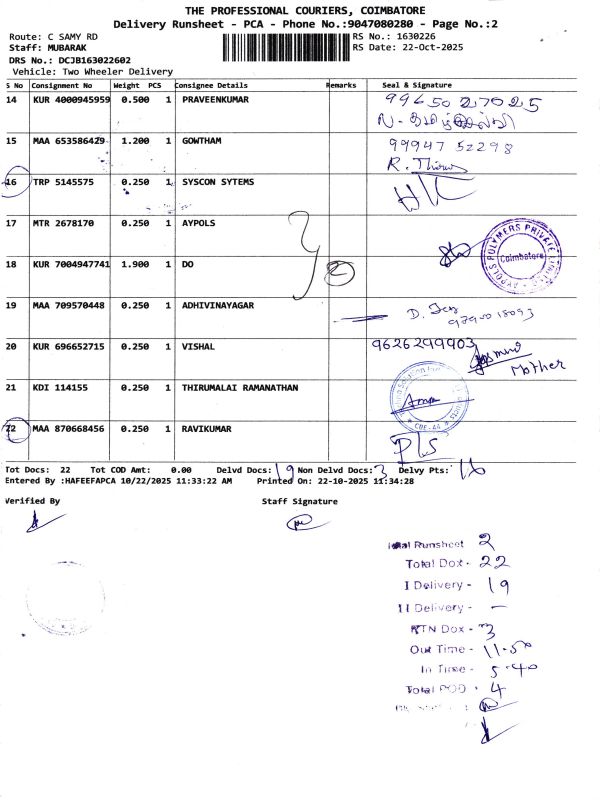 THE PROFESSIONAL COURIERS, COIMBATORE
Delivery Runsheet - PCA - Phone No.:9047080280 - Page No.:2
Route: C SAMY RD RS No.: 1630226
Staff: MUBARAK RS Date: 22-Oct-2025
DRS No.: DCJB163022602
Vehicle: Two Wheeler Delivery
S No Consignment No Weight PCS Consignee Details Remarks Seal & Signature
14 KUR 4000945959 0.500 1 PRAVEENKUMAR 99650 27025
15 MAA 653586429 1.200 1 GOWTHAM 99947 52298
R.
16 TRP 5145575 0.250 1 SYSCON SYTEMS
17 MTR 2678170 0.250 1 AYPOLS
AYPOLS POLYMERS PRIVATE LIMITED
Coimbatore
18 KUR 7004947741 1.900 1 DO 2
19 MAA 709570448 0.250 1 ADHIVINAYAGAR D.
20 KUR 696652715 0.250 1 VISHAL 9626299903
Mother
21 KDI 114155 0.250 1 THIRUMALAI RAMANATHAN
CBE-44
22 MAA 870668456 0.250 1 RAVIKUMAR
Tot Docs: 22 Tot COD Amt: 0.00 Delvd Docs: 19 Non Delvd Docs: 3 Delvy Pts: 16
Entered By :HAFEEFAPCA 10/22/2025 11:33:22 AM Printed On: 22-10-2025 11:34:28
Verified By Staff Signature
Total Runsheet 2
Total Dox - 22
I Delivery - 19
II Delivery - –
RTN Dox - 3
Out Time - 11.50
In Time - 5.40
Total POD - 4